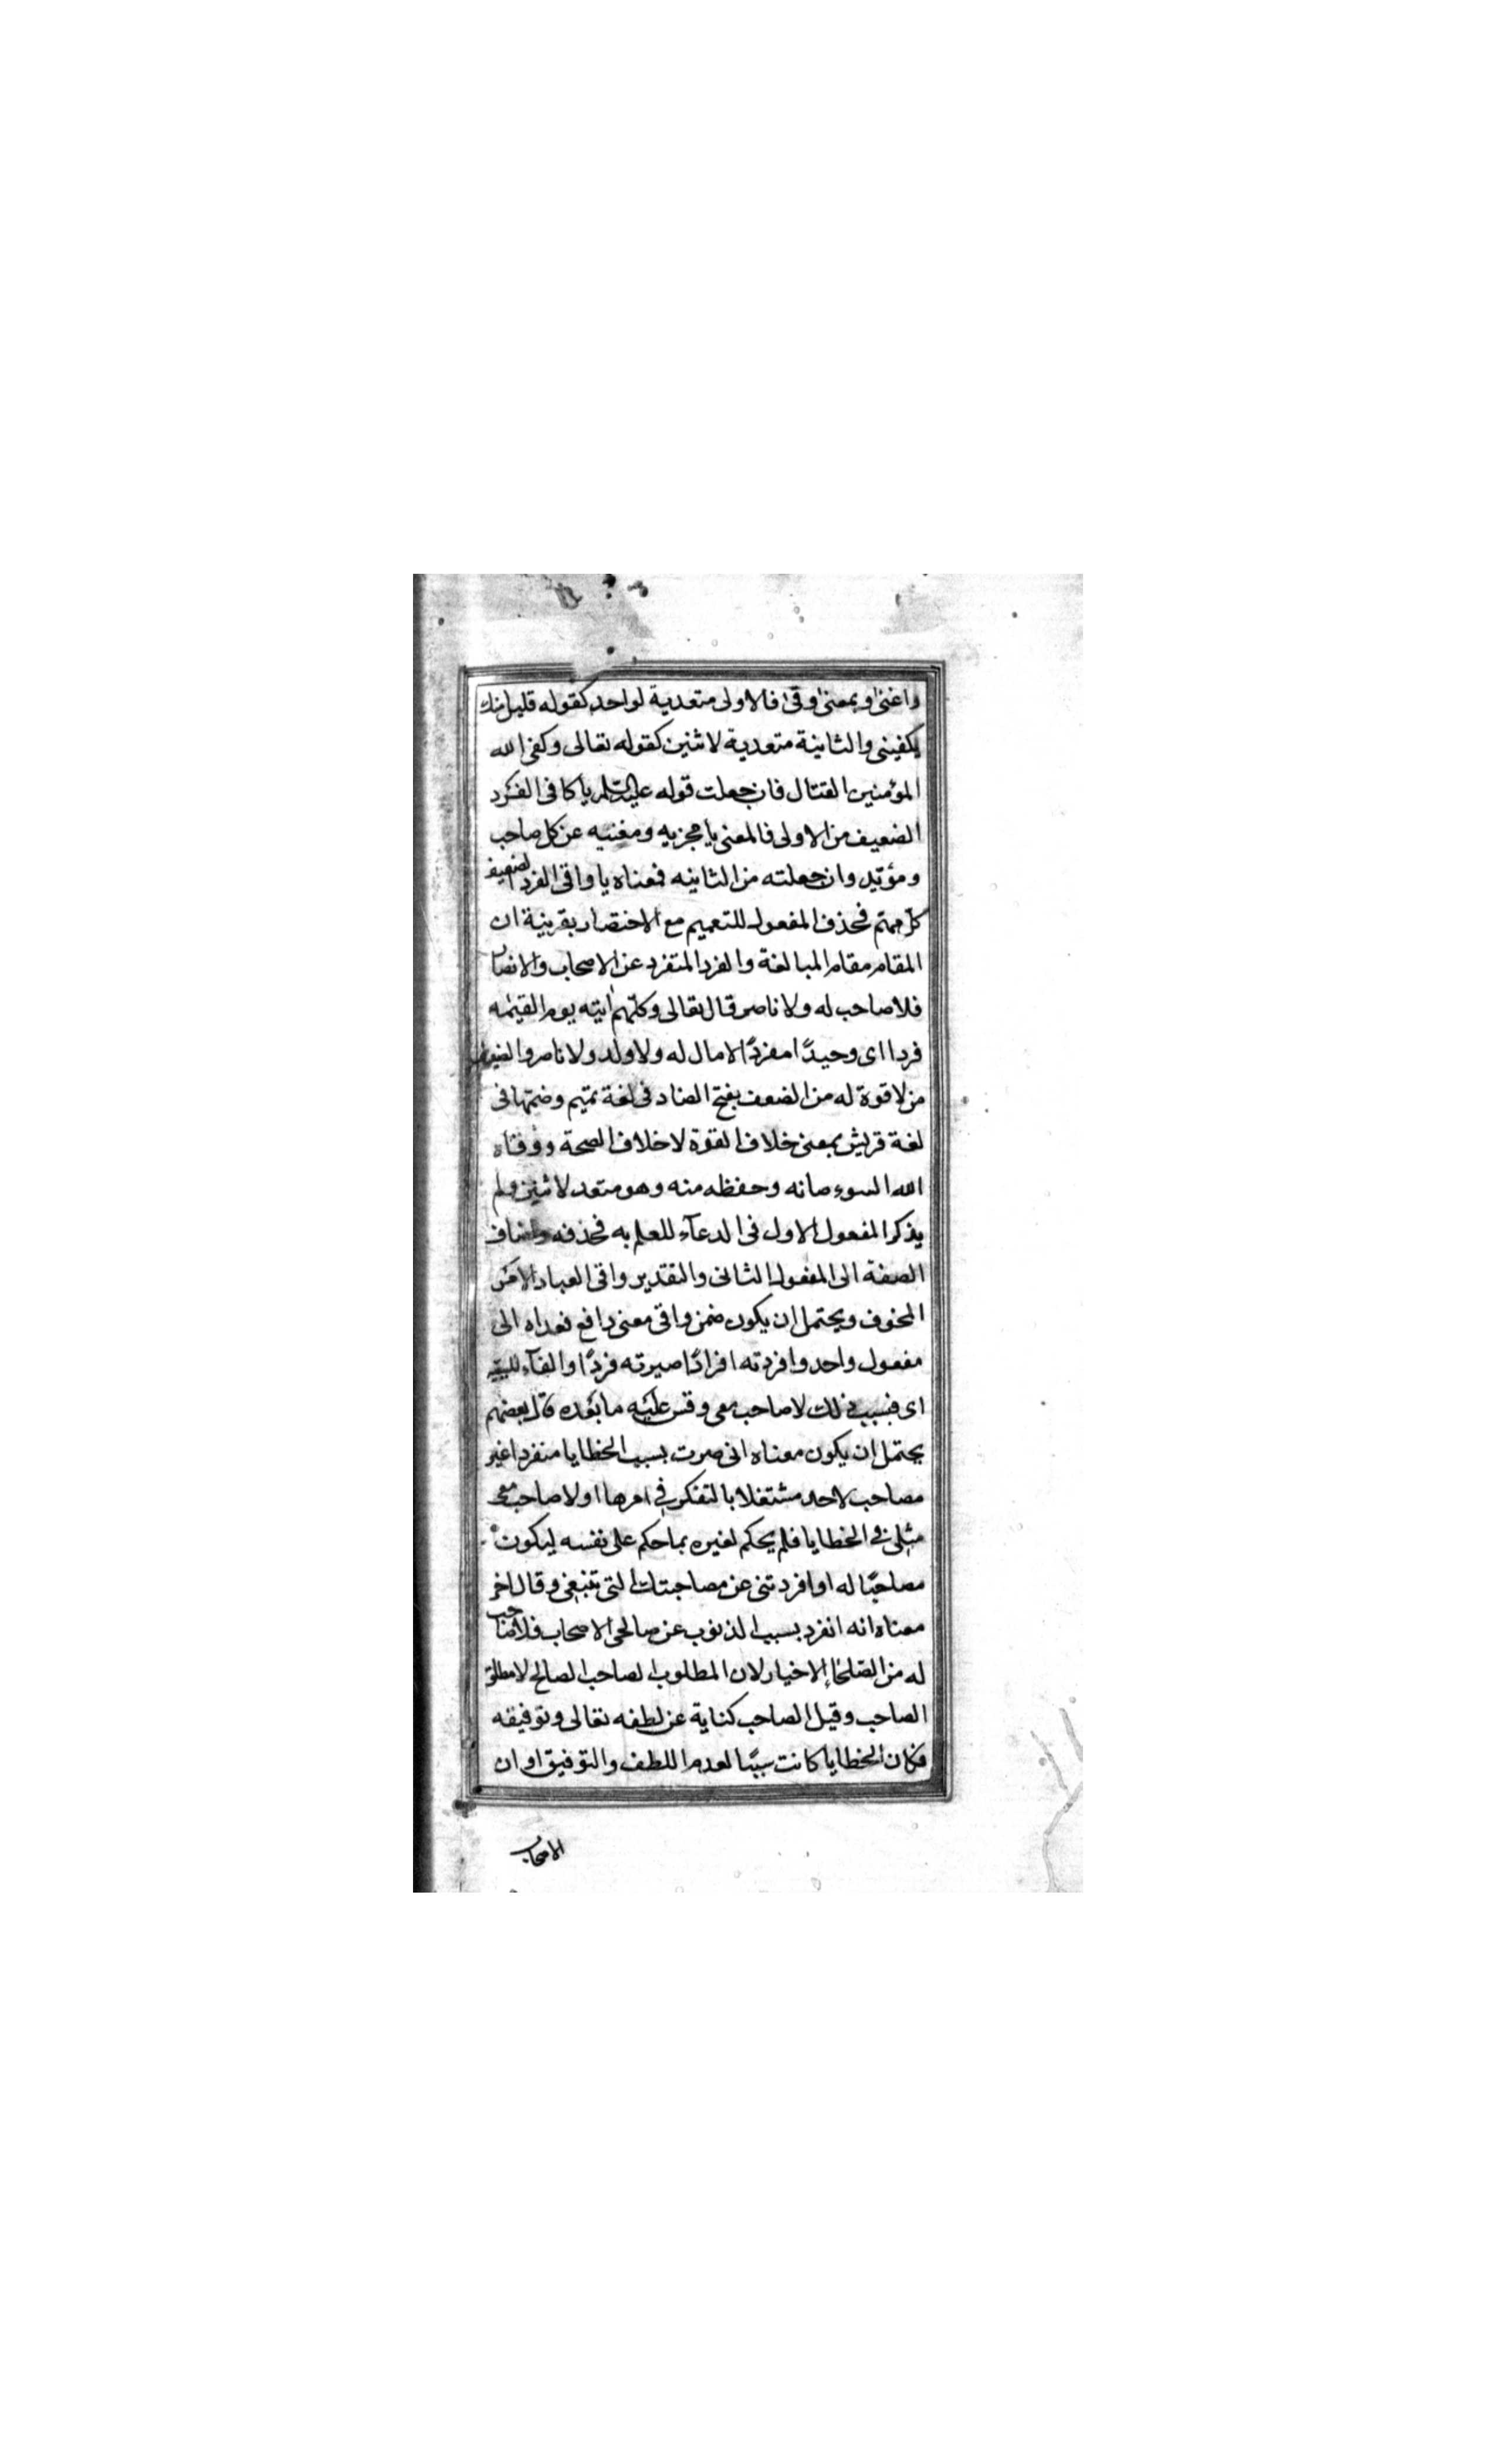 واغنى وبمعنى وقى فالاولى متعدية لواحد كقوله قليل منك
يكفينى والثانية متعدية لاثنين كقوله تعالى وكفى الله
المؤمنين القتال فان جعلت قوله عليه السلم يا كافى الفرد
الضعيف من الاولى فالمعنى يا مجزيه ومغنيه عن كل صاحب
ومؤيد وان جعلته من الثانيه فمعناه يا واقى الفرد الضعيف
كل مهم فحذف المفعول للتعميم مع الاختصار بقرينة ان
المقام مقام المبالغة والفرد المتفرد عن الاصحاب والانصار
فلا صاحب له ولا ناصر قال تعالى وكلهم اتيه يوم القيمه
فردا اى وحيدًا مفردًا لا مال له ولا ولد ولا ناصر والضعيف
من لا قوة له من الضعف بفتح الضاد فى لغة تميم وضمها فى
لغة قريش بمعنى خلاف القوة لا خلاف الصحة ووقاه
الله السوء صانه وحفظه منه وهو متعد لاثنين ولم
يذكر المفعول الاول فى الدعآء للعلم به فحذفه واضاف
الصفة الى المفعول الثانى والتقدير واقى العباد الامر
المخوف ويحتمل ان يكون ضمن واقى معنى دافع فعداه الى
مفعول واحد وافردته افرادًا صيرته فردًا والفآء للسببيه
اى فبسبب ذلك لا صاحب معى وقس عليه ما بعده قال بعضهم
يحتمل ان يكون معناه انى صرت بسبب الخطايا منفردا غير
مصاحب لاحد مشتغلا بالتفكر فى امرها اولا صاحب معى
مثلى فى الخطايا فلم يحكم لغيره بما حكم على نفسه ليكون
مصاحبًا له او افردتنى عن مصاحبتك التى تنبغى وقال اخر
معناه انه انفرد بسبب الذنوب عن صالحى الاصحاب فلا صاحب
له من الصلحاء الاخيار لان المطلوب الصاحب الصالح لا مطلق
الصاحب وقيل الصاحب كناية عن لطفه تعالى وتوفيقه
فكان الخطايا كانت سببًا لعدم اللطف والتوفيق او ان
الاصحاب